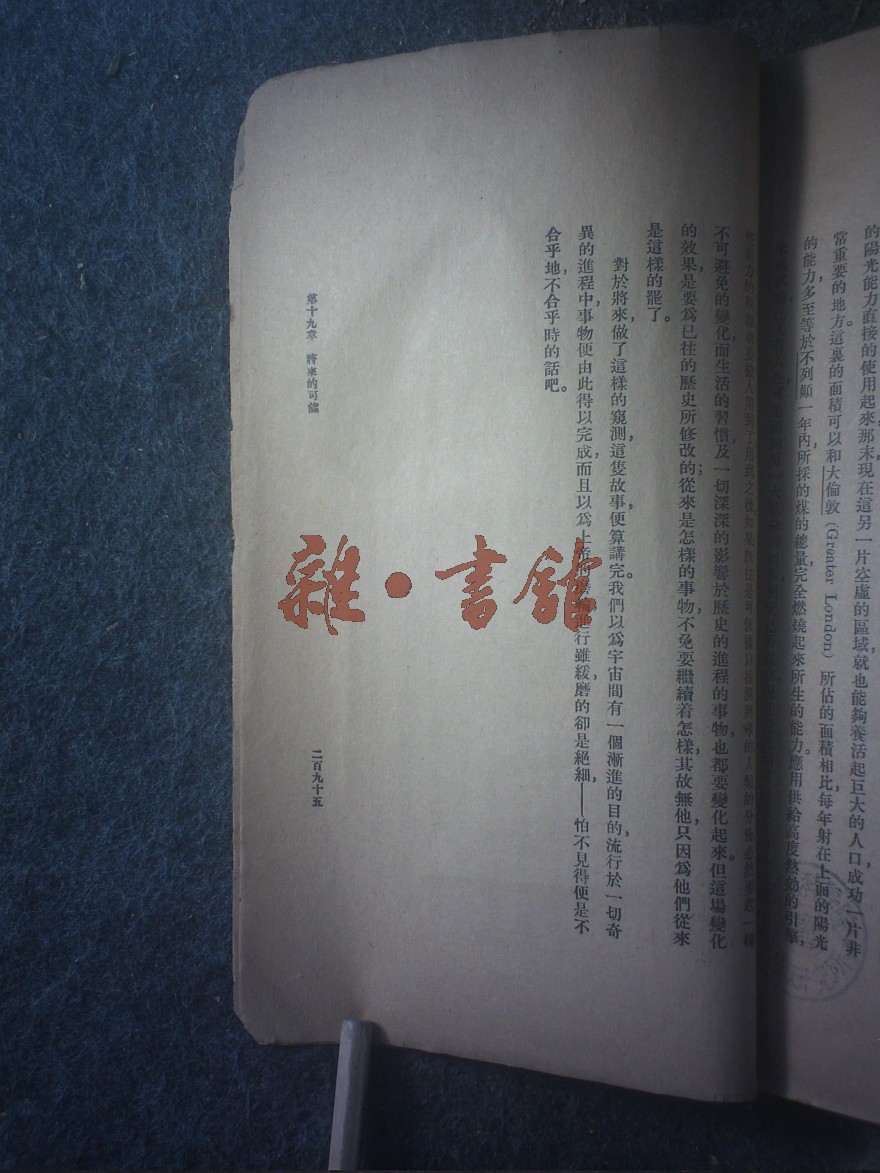 的陽光能力直接的使用起來,那末現在這另一片空虛的區域就也能夠養活起巨大的人口,成功一片非
常重要的地方。這裏的面積可以和大倫敦(Greater London)所佔的面積相比,每年射在上面的陽光
的能力,多至等於不列顛一年內所採的煤的總量完全燃燒起來所生的能力。應用供給高度熱効的引擎,
不可避免的變化,而生活的習慣及一切深深的影響於歷史的進程的事物,也都要變化起來。但這場變化
的效果,是要爲已往的歷史所修改的;從來是怎樣的事物,不免要繼續着怎樣,其故無他,只因爲他們從來
是這樣的罷了。
對於將來做了這樣的窺測,這隻故事便算講完。我們以爲宇宙間有一個漸進的目的,流行於一切奇
異的進程中,事物便由此得以完成,而且以爲上帝的進行雖緩,磨的卻是絕細,——怕不見得便是不
合乎地,不合乎時的話吧。
第十九章 將來的可能
二百九十五
雜·書館